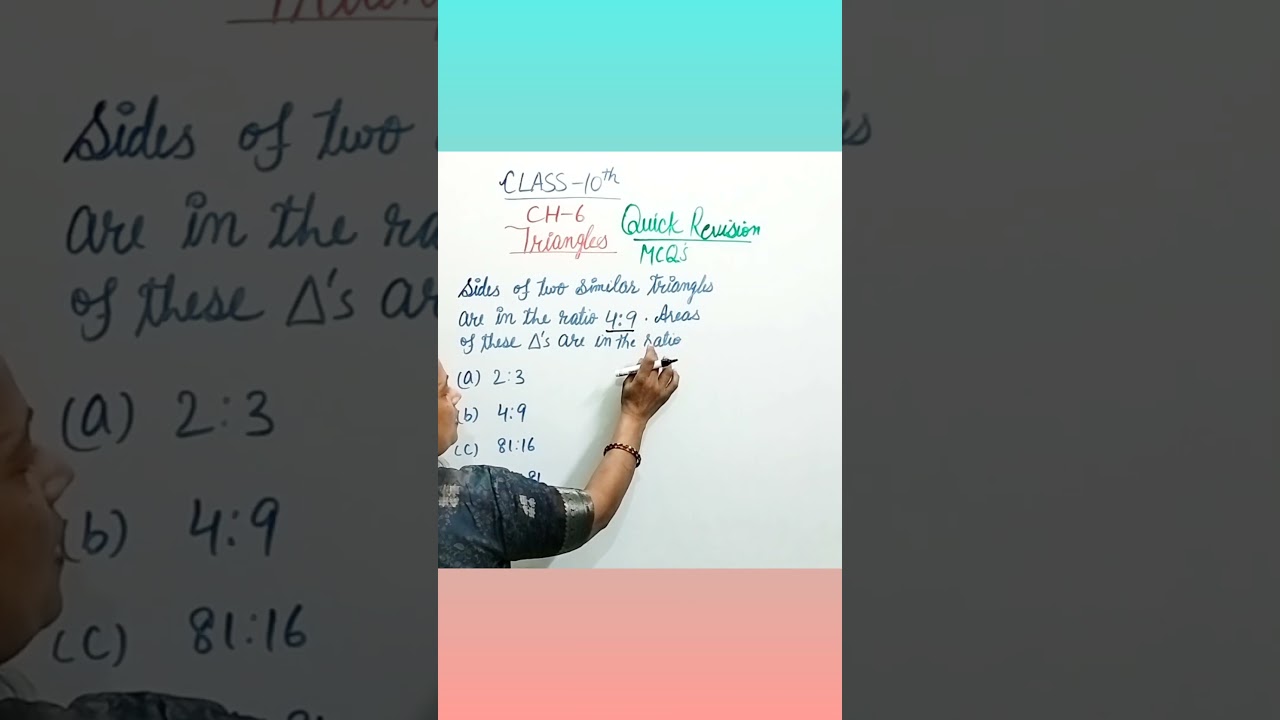 CLASS-10th
CH-6
Triangles
Quick Revision
MCQ's
Sides of two similar triangles
are in the ratio 4:9. Areas
of these Δ's are in the ratio
(a) 2:3
(b) 4:9
(c) 81:16
81